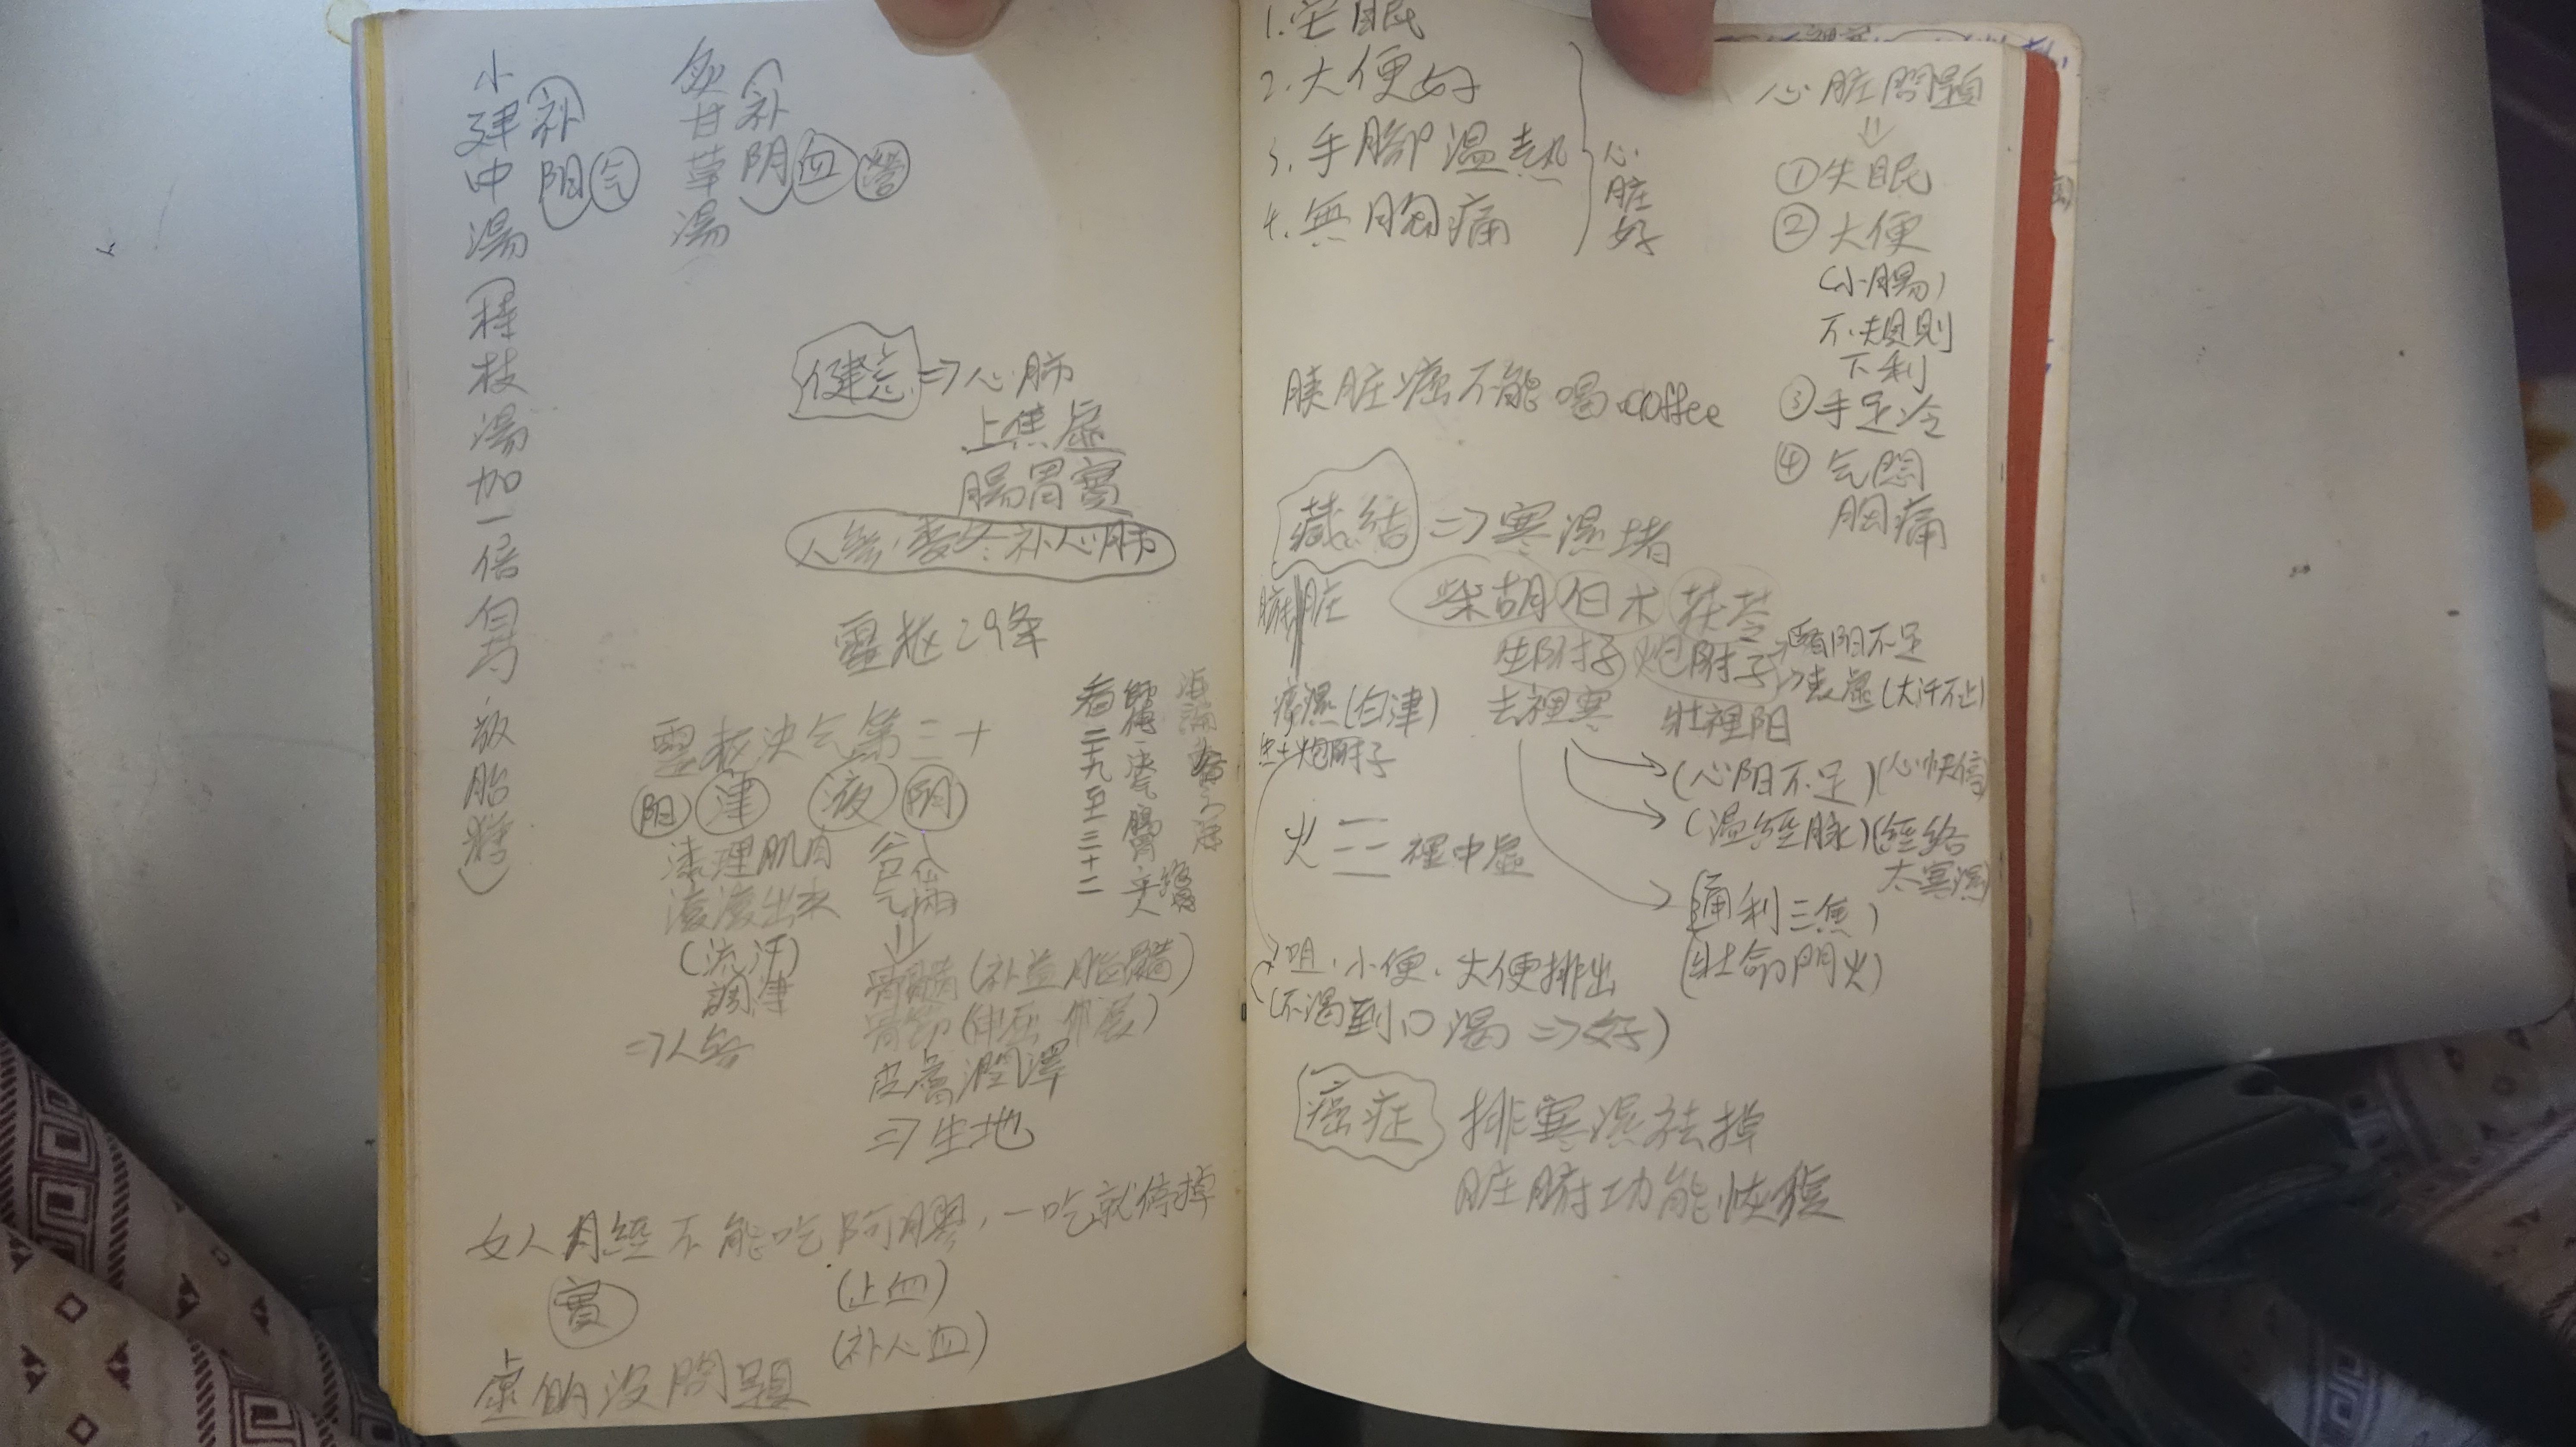 小建中湯(桂枝湯加一倍白芍 飴糖)
补阳气
炙甘草湯
补阴血
健忘 => 心肺
上焦虛
腸胃實
人參.麥冬补心肺
靈樞29条
靈樞決气第三十
阳 津 液 阴
湊理肌肉
出來
(流汗)
調津
=>人參
谷入
气滿
骨髓(补益腦髓)
骨節(伸屈
皮膚潤澤
=>生地
看二十九至三十二
師傳.決气 腸胃 平人
女人月經不能吃阿膠,一吃就停掉
實
(止血)
(补心血)
虛的沒問題
1.安眠
2.大便好
3.手腳溫熱
4.無胸痛
心脏好
心脏問題
①失眠
②大便
(小腸)
不規則
下利
③手足冷
④气悶
胸痛
胰脏癌不能喝coffee
藏結 => 寒濕堵
脏
柴胡 白术 茯苓
生附子 炮附子
阳不足
表虛(大汗不止)
去裡寒 壯裡阳
(白津)
炮附子
(心阳不足)(心快停)
(溫經脉)(經絡
太寒濕)
火 裡中虛
(通利三焦)
(壯命門火)
小便.大便排出
(不渴到口渴=>好)
癌症
排寒濕祛掉
脏腑功能恢復